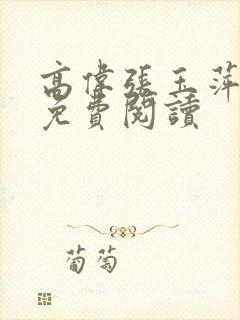 高偉張玉萍
免費閱讀
葡萄